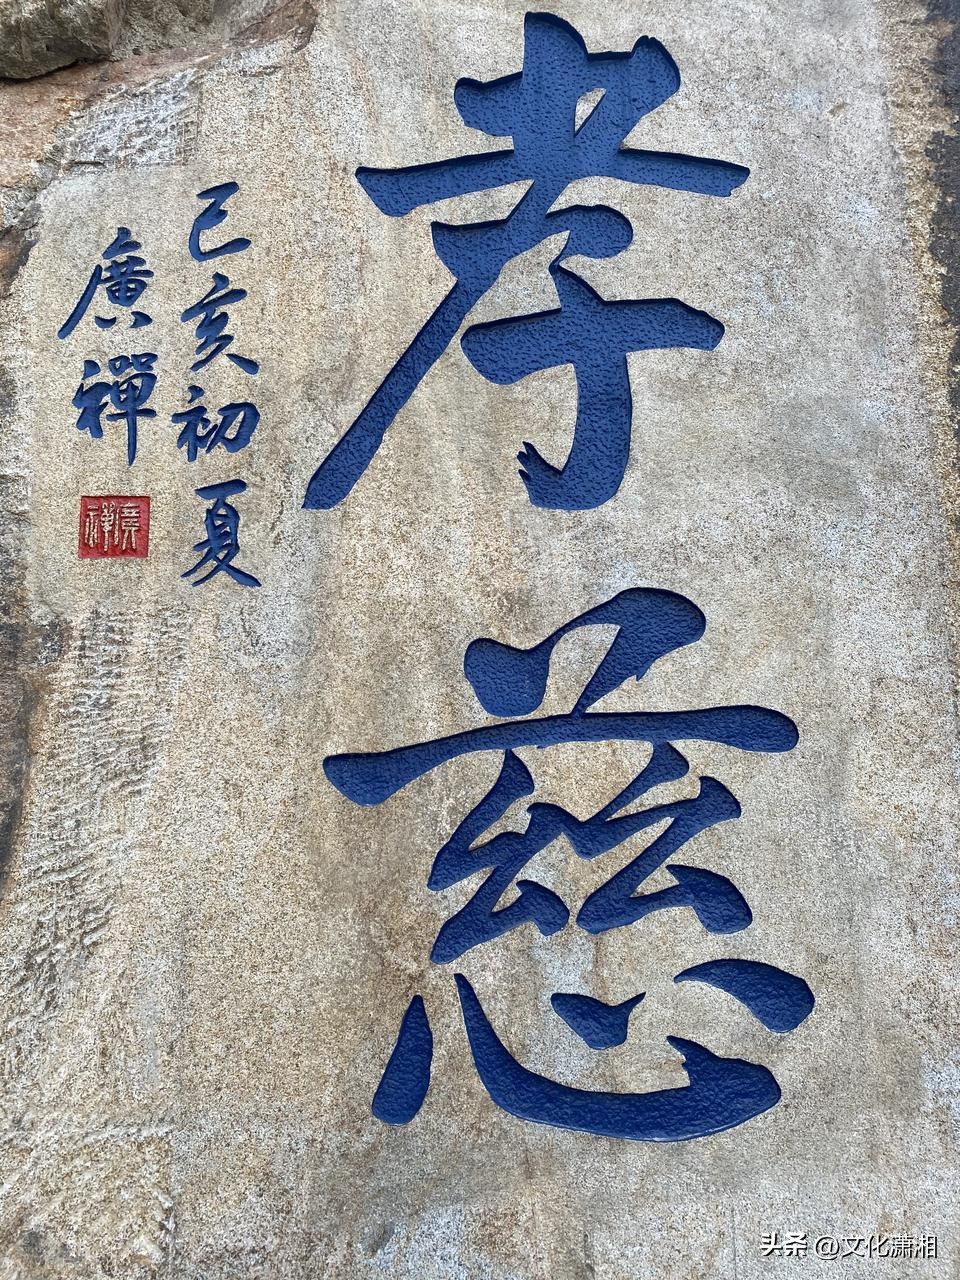 孝慈
己亥初夏
廣禪
廣禪
头条 @文化潇湘